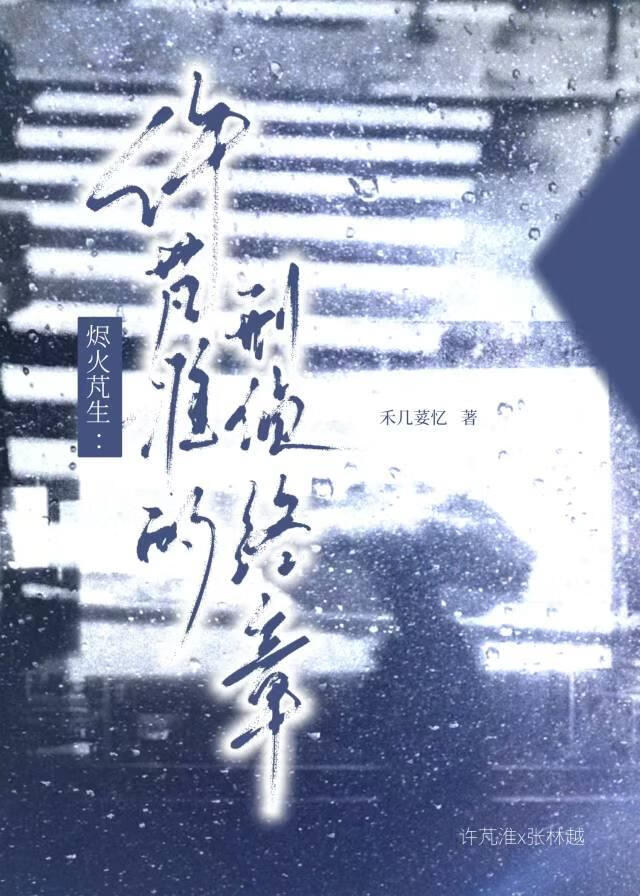 烬火芃生：
许芃淮的
刑侦终章
禾几荽忆 著
许芃淮x张林越